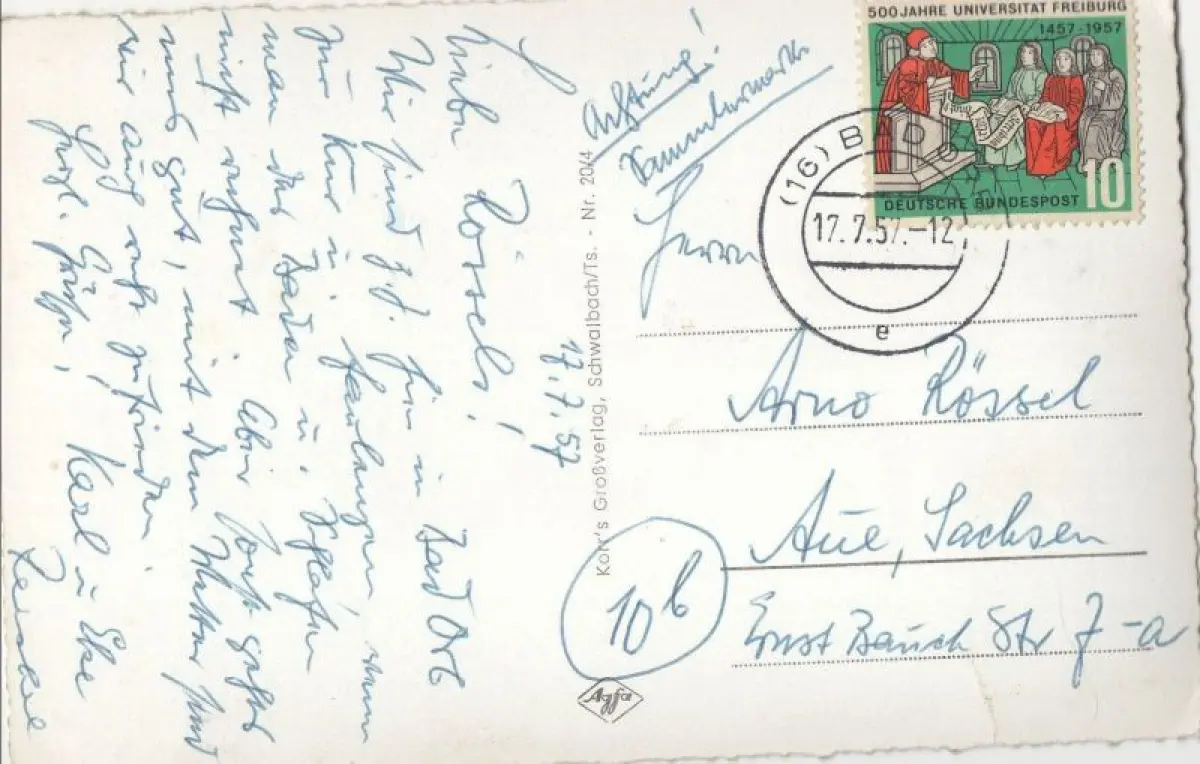 17.7.57
Liebe Rössels!
Wir sind z.Z. hier in Bad Orb
zur Kur u. faulenzen wenn
man das Baden u. Schlafen
nicht rechnet. Aber sonst gehts
uns gut, mit dem Wetter sind
wir auch recht zufrieden.
Herzl. Grüße, Karl u Else
Korr's Großverlag, Schwalbach/Ts. - Nr. 20/4
Agfa
500 JAHRE UNIVERSITÄT FREIBURG
1457-1957
DEUTSCHE BUNDESPOST 10
(16) BAD
17.7.57.-12
e
Achtung!
Sammlermarke
Herrn
Arno Rössel
Aue, Sachsen
Ernst Bauch Str 7-a
10b